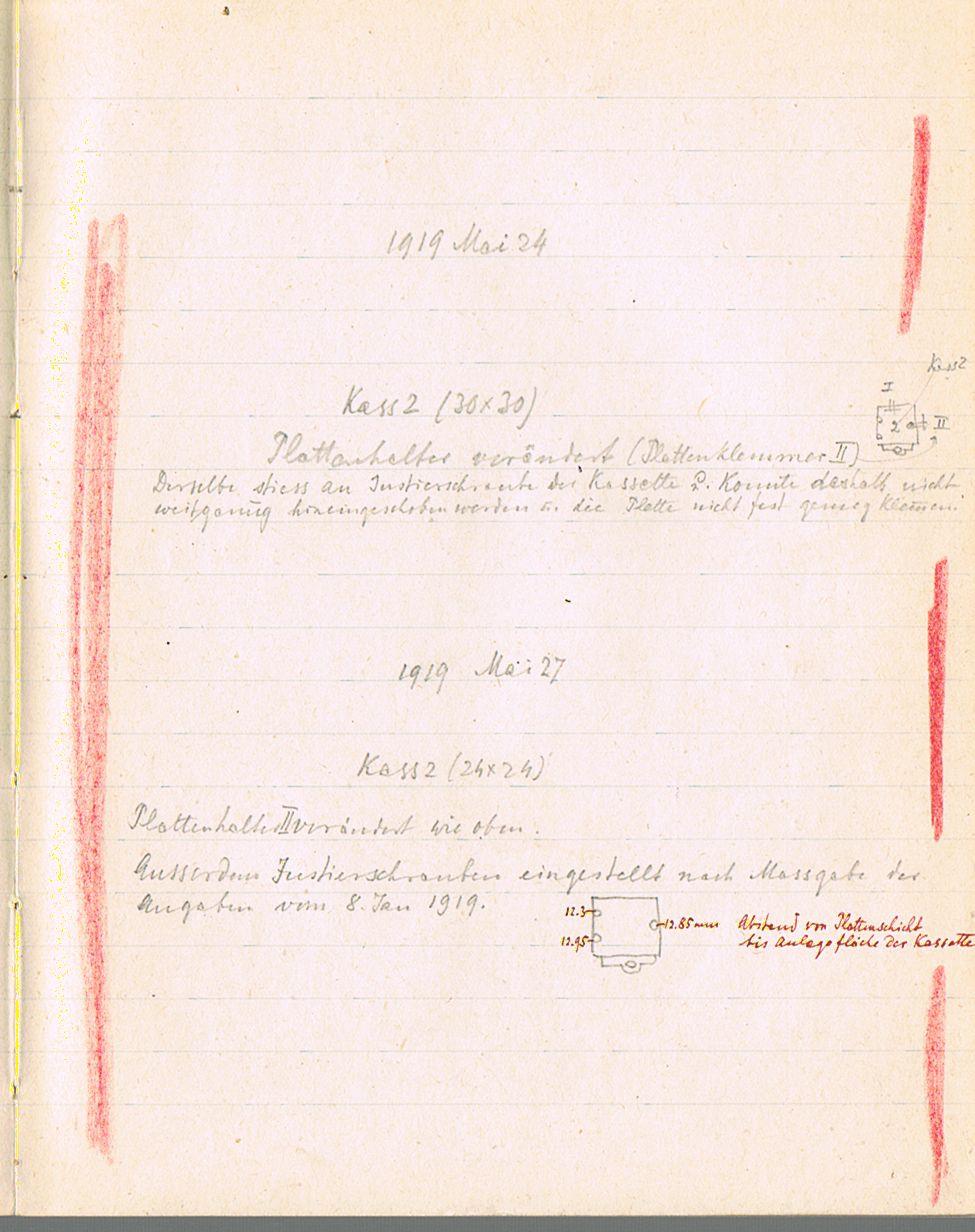 1919 Mai 24
Kass 2
I
2 II
Kass 2 (30×30)
Plattenhalter verändert (Plattenklemmer II)
Derselbe stiess an Justierschraube der Kassette 2. Konnte deshalb nicht
weit genug hineingeschoben werden u. die Platte nicht fest genug klemmen.
1919 Mai 27
Kass 2 (24×24)
Plattenhalter II verändert wie oben.
Ausserdem Justierschrauben eingestellt nach Massgabe der
Angaben vom 8. Jan 1919.
12.3
12.85 mm Abstand von Plattenschicht
12.95 bis Anlagefläche der Kassette